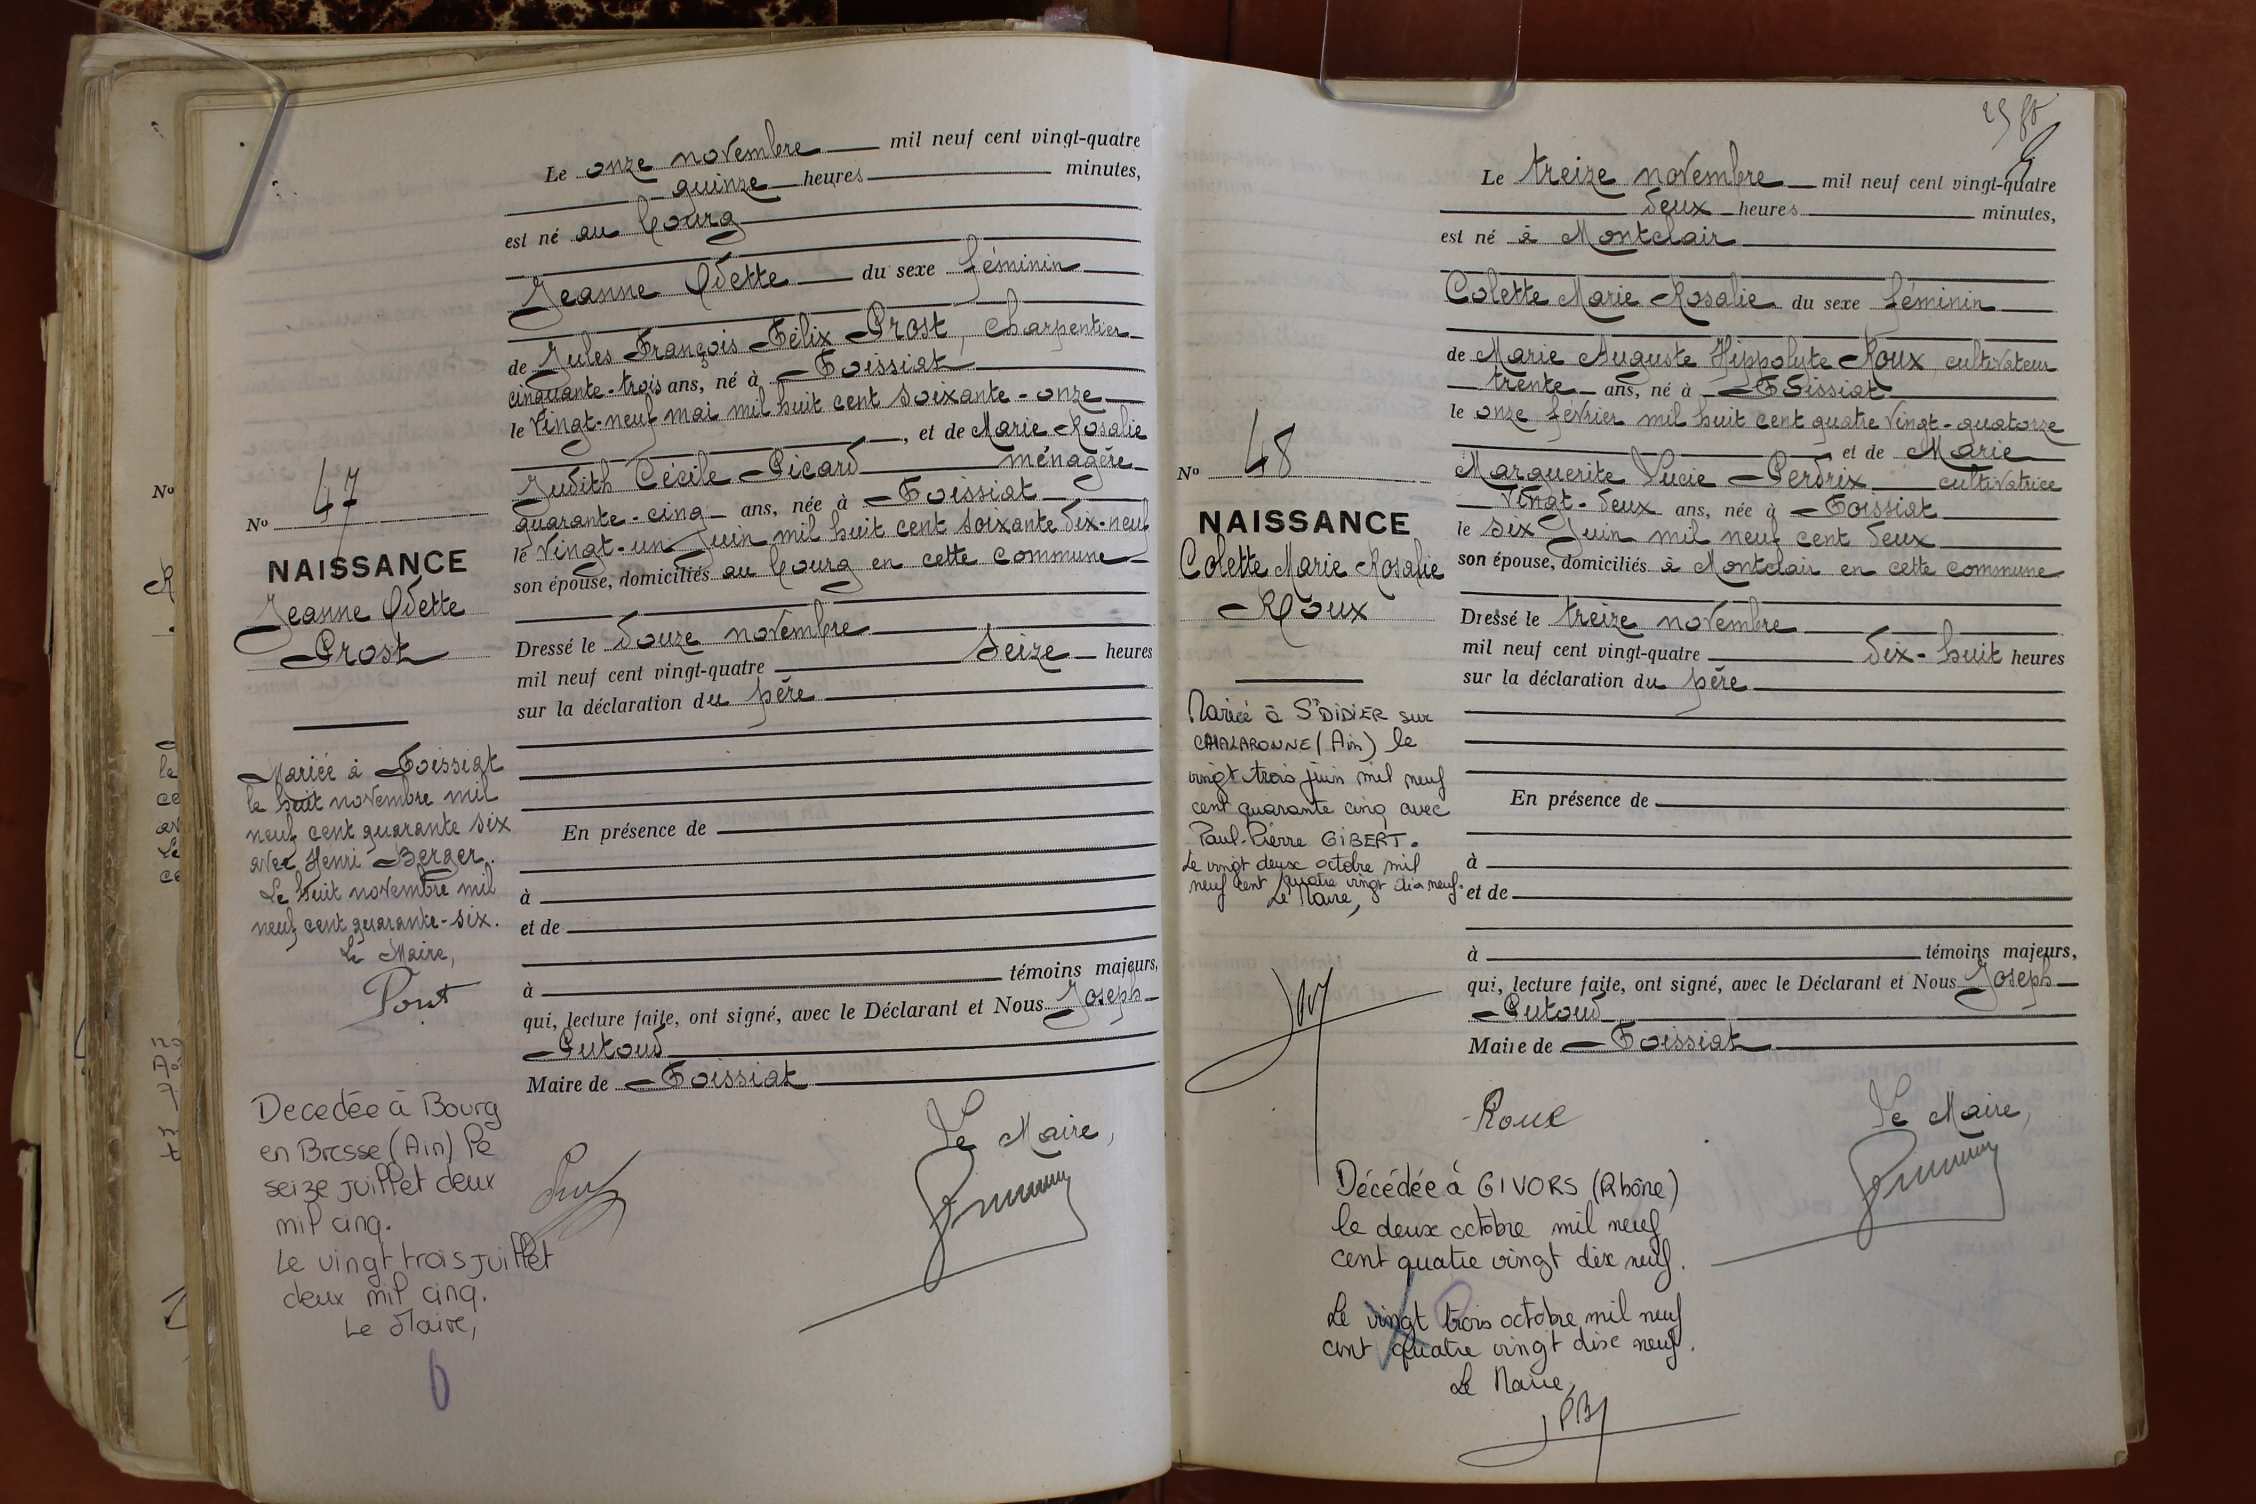 Nº 47
NAISSANCE
Jeanne Odette
Prost
Mariée à Foissiat
le huit novembre mil
neuf cent quarante six
avec Henri Berger.
Le huit novembre mil
neuf cent quarante-six.
Le Maire,
Decedée à Bourg
en Bresse (Ain) le
seize juillet deux
mil cinq.
Le vingt trois juillet
deux mil cinq.
Le Maire,
Le onze novembre mil neuf cent vingt-quatre
quinze heures minutes,
est né au bourg
Jeanne Odette du sexe féminin
de Jules François Félix Prost, charpentier
cinquante-trois ans, né à Foissiat
le vingt-neuf mai mil huit cent soixante-onze
, et de Marie Rosalie
Judith Cécile Picard ménagère
quarante-cinq ans, née à Foissiat
le vingt-un juin mil huit cent soixante dix-neuf
son épouse, domiciliés au bourg en cette commune
Dressé le douze novembre
mil neuf cent vingt-quatre seize heures
sur la déclaration du père
En présence de
à
et de
à témoins majeurs,
qui, lecture faite, ont signé, avec le Déclarant et Nous Joseph
Putoud
Maire de Foissiat
Le Maire,
Nº 48
NAISSANCE
Colette Marie Rosalie
Roux
Mariée à St DIDIER sur
CHALARONNE (Ain) le
vingt trois juin mil neuf
cent quarante cinq avec
Paul-Pierre GIBERT.
Le vingt deux octobre mil
neuf cent quatre vingt dix neuf.
Le Maire,
Le treize novembre mil neuf cent vingt-quatre
deux heures minutes,
est né à Montclair
Colette Marie Rosalie du sexe féminin
de Marie Auguste Hippolyte Roux cultivateur
trente ans, né à Foissiat
le onze février mil huit cent quatre vingt-quatorze
et de Marie
Marguerite Lucie Perdrix cultivatrice
vingt-deux ans, née à Foissiat
le six juin mil neuf cent deux
son épouse, domiciliés à Montclair en cette commune
Dressé le treize novembre
mil neuf cent vingt-quatre dix-huit heures
sur la déclaration du père
En présence de
à
et de
à témoins majeurs,
qui, lecture faite, ont signé, avec le Déclarant et Nous Joseph
Putoud
Maire de Foissiat
Roux
Le Maire,
Décédée à GIVORS (Rhône)
le deux octobre mil neuf
cent quatre vingt dix neuf.
Le vingt trois octobre mil neuf
cent quatre vingt dix neuf.
Le Maire,